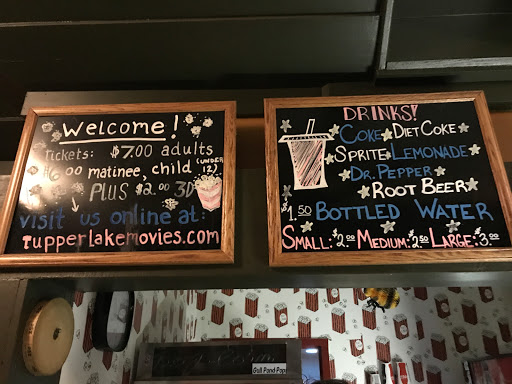 Welcome!
Tickets: $7.00 adults
$6.00 matinee, child (UNDER 12)
PLUS $2.00 3D
visit us online at:
Tupperlakemovies.com
DRINKS!
COKE DIET COKE
SPRITE LEMONADE
DR. PEPPER
ROOT BEER
$1.50 BOTTLED WATER
SMALL: $2.00 MEDIUM: $2.50 LARGE: $3.00
Gull Pond Pop